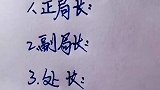 1.正局长:
2.副局长:
3.处长: